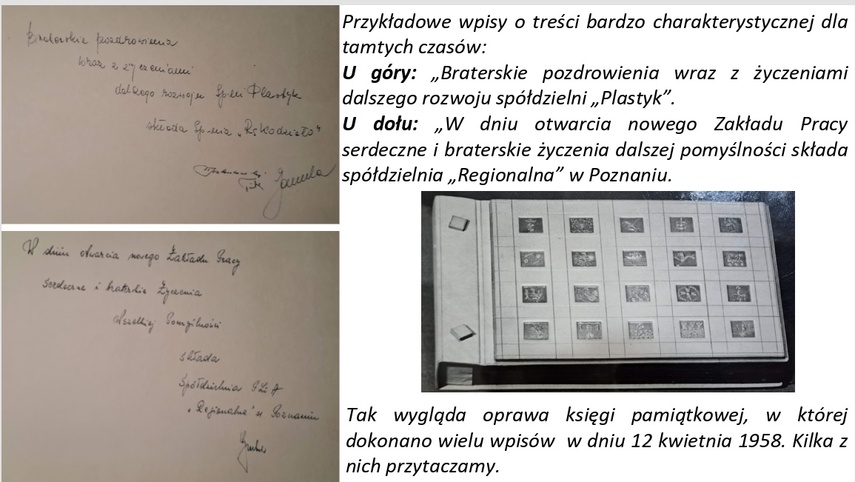 Braterskie pozdrowienia
wraz z życzeniami
dalszego rozwoju Sp-ni Plastyk
składa Sp-nia „Rękodzieło”
W dniu otwarcia nowego Zakładu Pracy
serdeczne i braterskie Życzenia
wszelkiej Pomyślności
składa
Spółdzielnia
„Regionalna” w Poznaniu
Przykładowe wpisy o treści bardzo charakterystycznej dla
tamtych czasów:
U góry: „Braterskie pozdrowienia wraz z życzeniami
dalszego rozwoju spółdzielni „Plastyk”.
U dołu: „W dniu otwarcia nowego Zakładu Pracy
serdeczne i braterskie życzenia dalszej pomyślności składa
spółdzielnia „Regionalna” w Poznaniu.
Tak wygląda oprawa księgi pamiątkowej, w której
dokonano wielu wpisów w dniu 12 kwietnia 1958. Kilka z
nich przytaczamy.